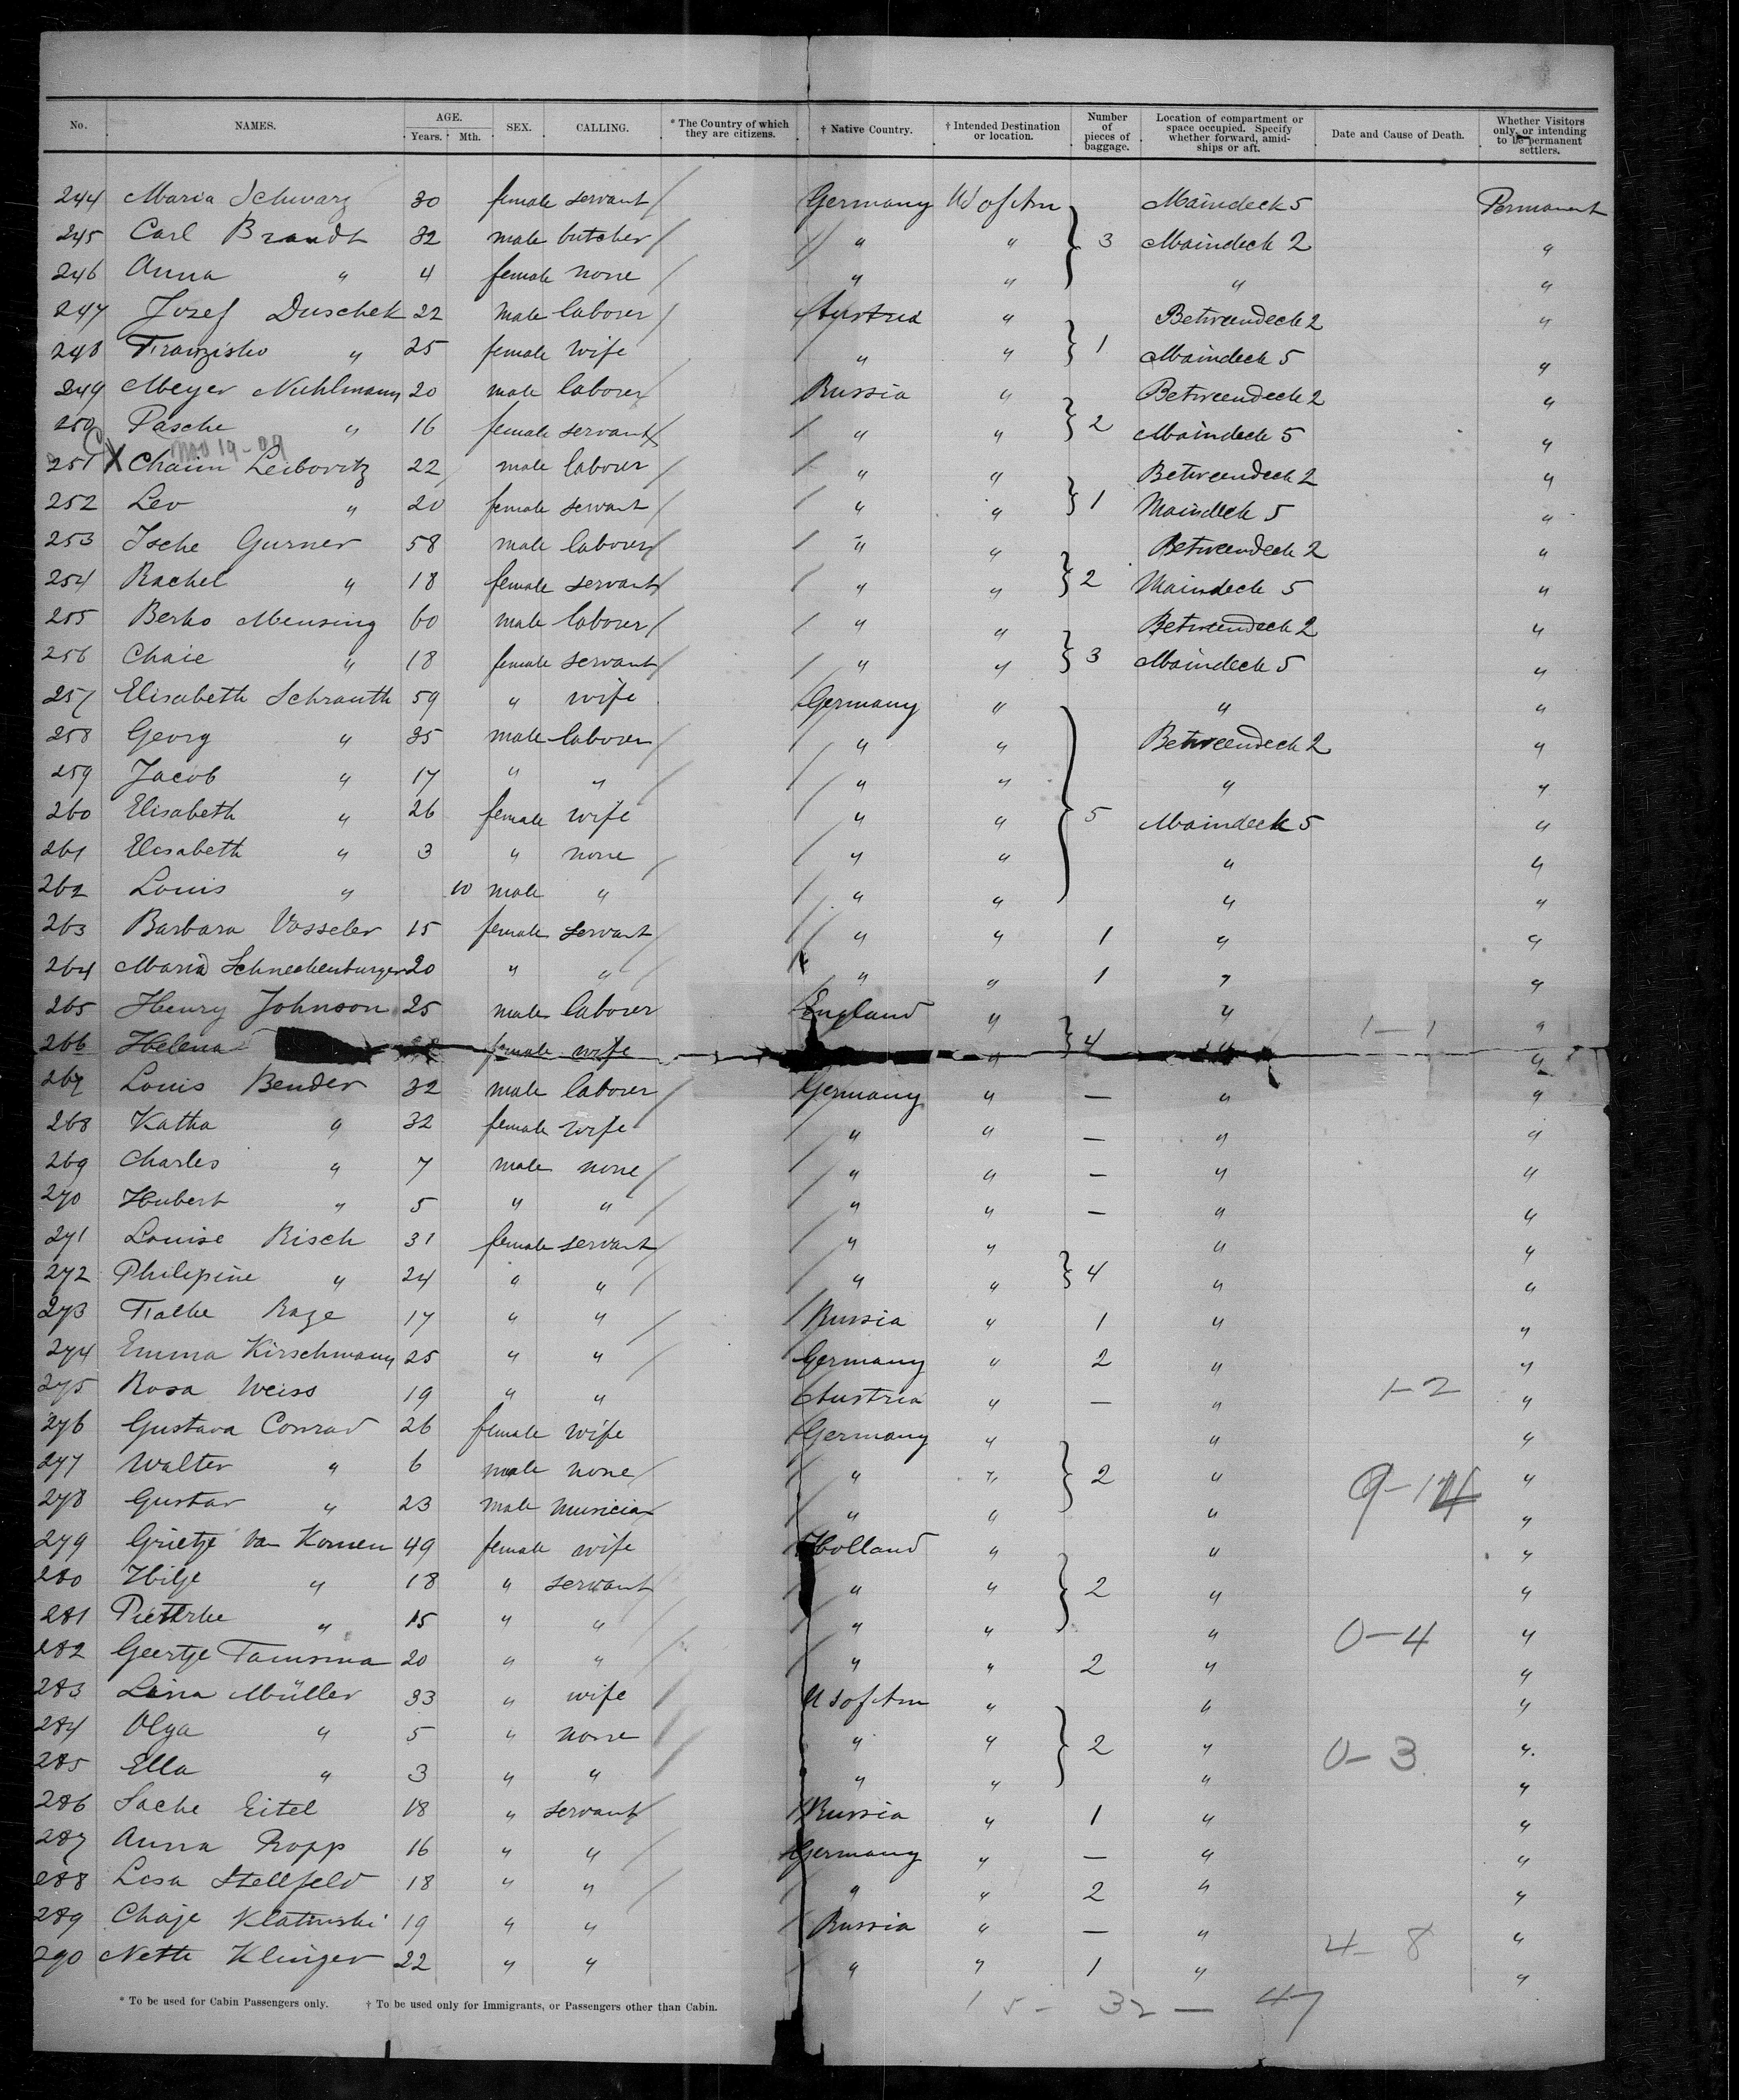 No. NAMES. AGE. Years. Mth. SEX. CALLING. * The Country of which they are citizens. † Native Country. † Intended Destination or location. Number of pieces of baggage. Location of compartment or space occupied. Specify whether forward, amidships or aft. Date and Cause of Death. Whether Visitors only, or intending to be permanent settlers.
244 Maria Schwarz 30 female servant / Germany U S of Am Maindeck 5 Permanent
245 Carl Brandt 32 male butcher / / " " } 3 Maindeck 2 "
246 Anna " 4 female none / " " " "
247 Jozef Duschek 22 male laborer / Austria " Betweendeck 2 "
248 Franzisko " 25 female wife / " " } 1 Maindeck 5 "
249 Meyer Nuhlmann 20 male laborer / Russia " Betweendeck 2 "
250 Pasche " 16 female servant / / " " } 2 Maindeck 5 "
251 X Chaim Leibovitz 22 male laborer / " " Betweendeck 2 "
252 Lev " 20 female servant / / " " } 1 Maindeck 5 "
253 Ische Gurner 58 male laborer / / " " Betweendeck 2 "
254 Rachel " 18 female servant / / " " } 2 Maindeck 5 "
255 Berko Mensing 60 male laborer / / " " Betweendeck 2 "
256 Chaie " 18 female servant / / " " } 3 Maindeck 5 "
257 Elisabeth Schrauth 59 " wife Germany " " "
258 Georg " 35 male laborer / / " " Betweendeck 2 "
259 Jacob " 17 " " / / " " " "
260 Elisabeth " 26 female wife / " " } 5 Maindeck 5 "
261 Elisabeth " 3 " none / / " " " "
262 Louis " 10 male " / " " " "
263 Barbara Vosseler 15 female servant / / " " 1 " "
264 Maria Schneckenburger 20 " " / / " " 1 " "
265 Henry Johnson 25 male laborer England " " 1-1 "
266 Helena female wife " } 4 " "
267 Louis Bender 32 male laborer / Germany " — " "
268 Katha " 32 female wife / " " — " "
269 Charles " 7 male none / / " " — " "
270 Hubert " 5 " " / / " " — " "
271 Louise Risch 31 female servant / / " " " "
272 Philipine " 24 " " / / " " } 4 " "
273 Rage 17 " " / Russia " 1 " "
274 Emma Kirschmann 25 " " / Germany " 2 " "
275 Rosa Weiss 19 " " Austria " — " 1-2 "
276 Gustava Conrad 26 female wife Germany " " "
277 Walter " 6 male none / / " " } 2 " "
278 Gustav " 23 male musician / " " " 9-14 "
279 Grietje van Komen 49 female wife Holland " " "
280 Hilje " 18 " servant / " " } 2 " "
281 Pieterke " 15 " " / / " " " 0-4 "
282 Geertje Tamsma 20 " " / / " " 2 " "
283 Lina Müller 33 " wife / U S of Am " " "
284 Olga " 5 " none / " " } 2 " "
285 Ella " 3 " " / " " " 0-3 "
286 Sache Eitel 18 " servant / Russia " 1 " "
287 Anna Ropp 16 " " / Germany " — " "
288 Lesa Stellfeld 18 " " / / " " 2 " "
289 Chaje Klatinski 19 " " / Russia " — " "
290 Nette Klinger 22 " " / " " 1 " 4-8 "
* To be used for Cabin Passengers only. † To be used only for Immigrants, or Passengers other than Cabin.
15 - 32 — 47